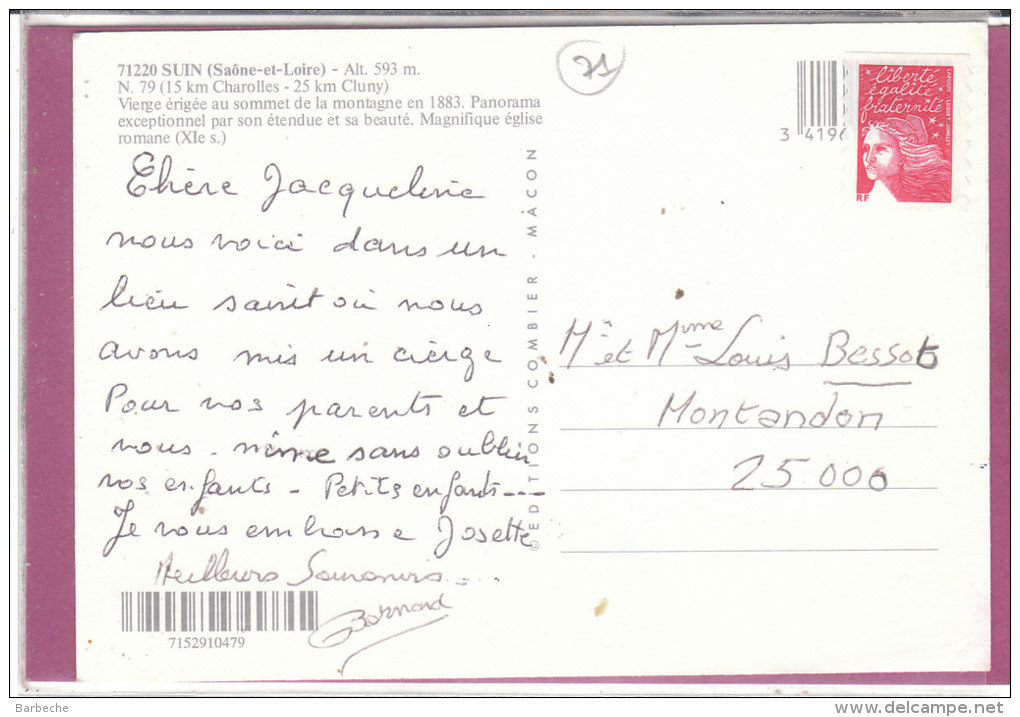 71220 SUIN (Saône-et-Loire) - Alt. 593 m.
N. 79 (15 km Charolles - 25 km Cluny)
Vierge érigée au sommet de la montagne en 1883. Panorama
exceptionnel par son étendue et sa beauté. Magnifique église
romane (XIe s.)
Chère Jacqueline
nous voici dans un
lieu saint où nous
avons mis un cierge
Pour vos parents et
vous - même sans oublier
vos enfants - Petits enfants ---
Je vous embrasse Josette
Meilleurs Souvenirs
Bernard
7152910479
© EDITIONS COMBIER - MÂCON
71
3 4196
liberté
égalité
fraternité
RF
Mr et Mme Louis Bessot
Montandon
25000
Barbeche
www.delcampe.net